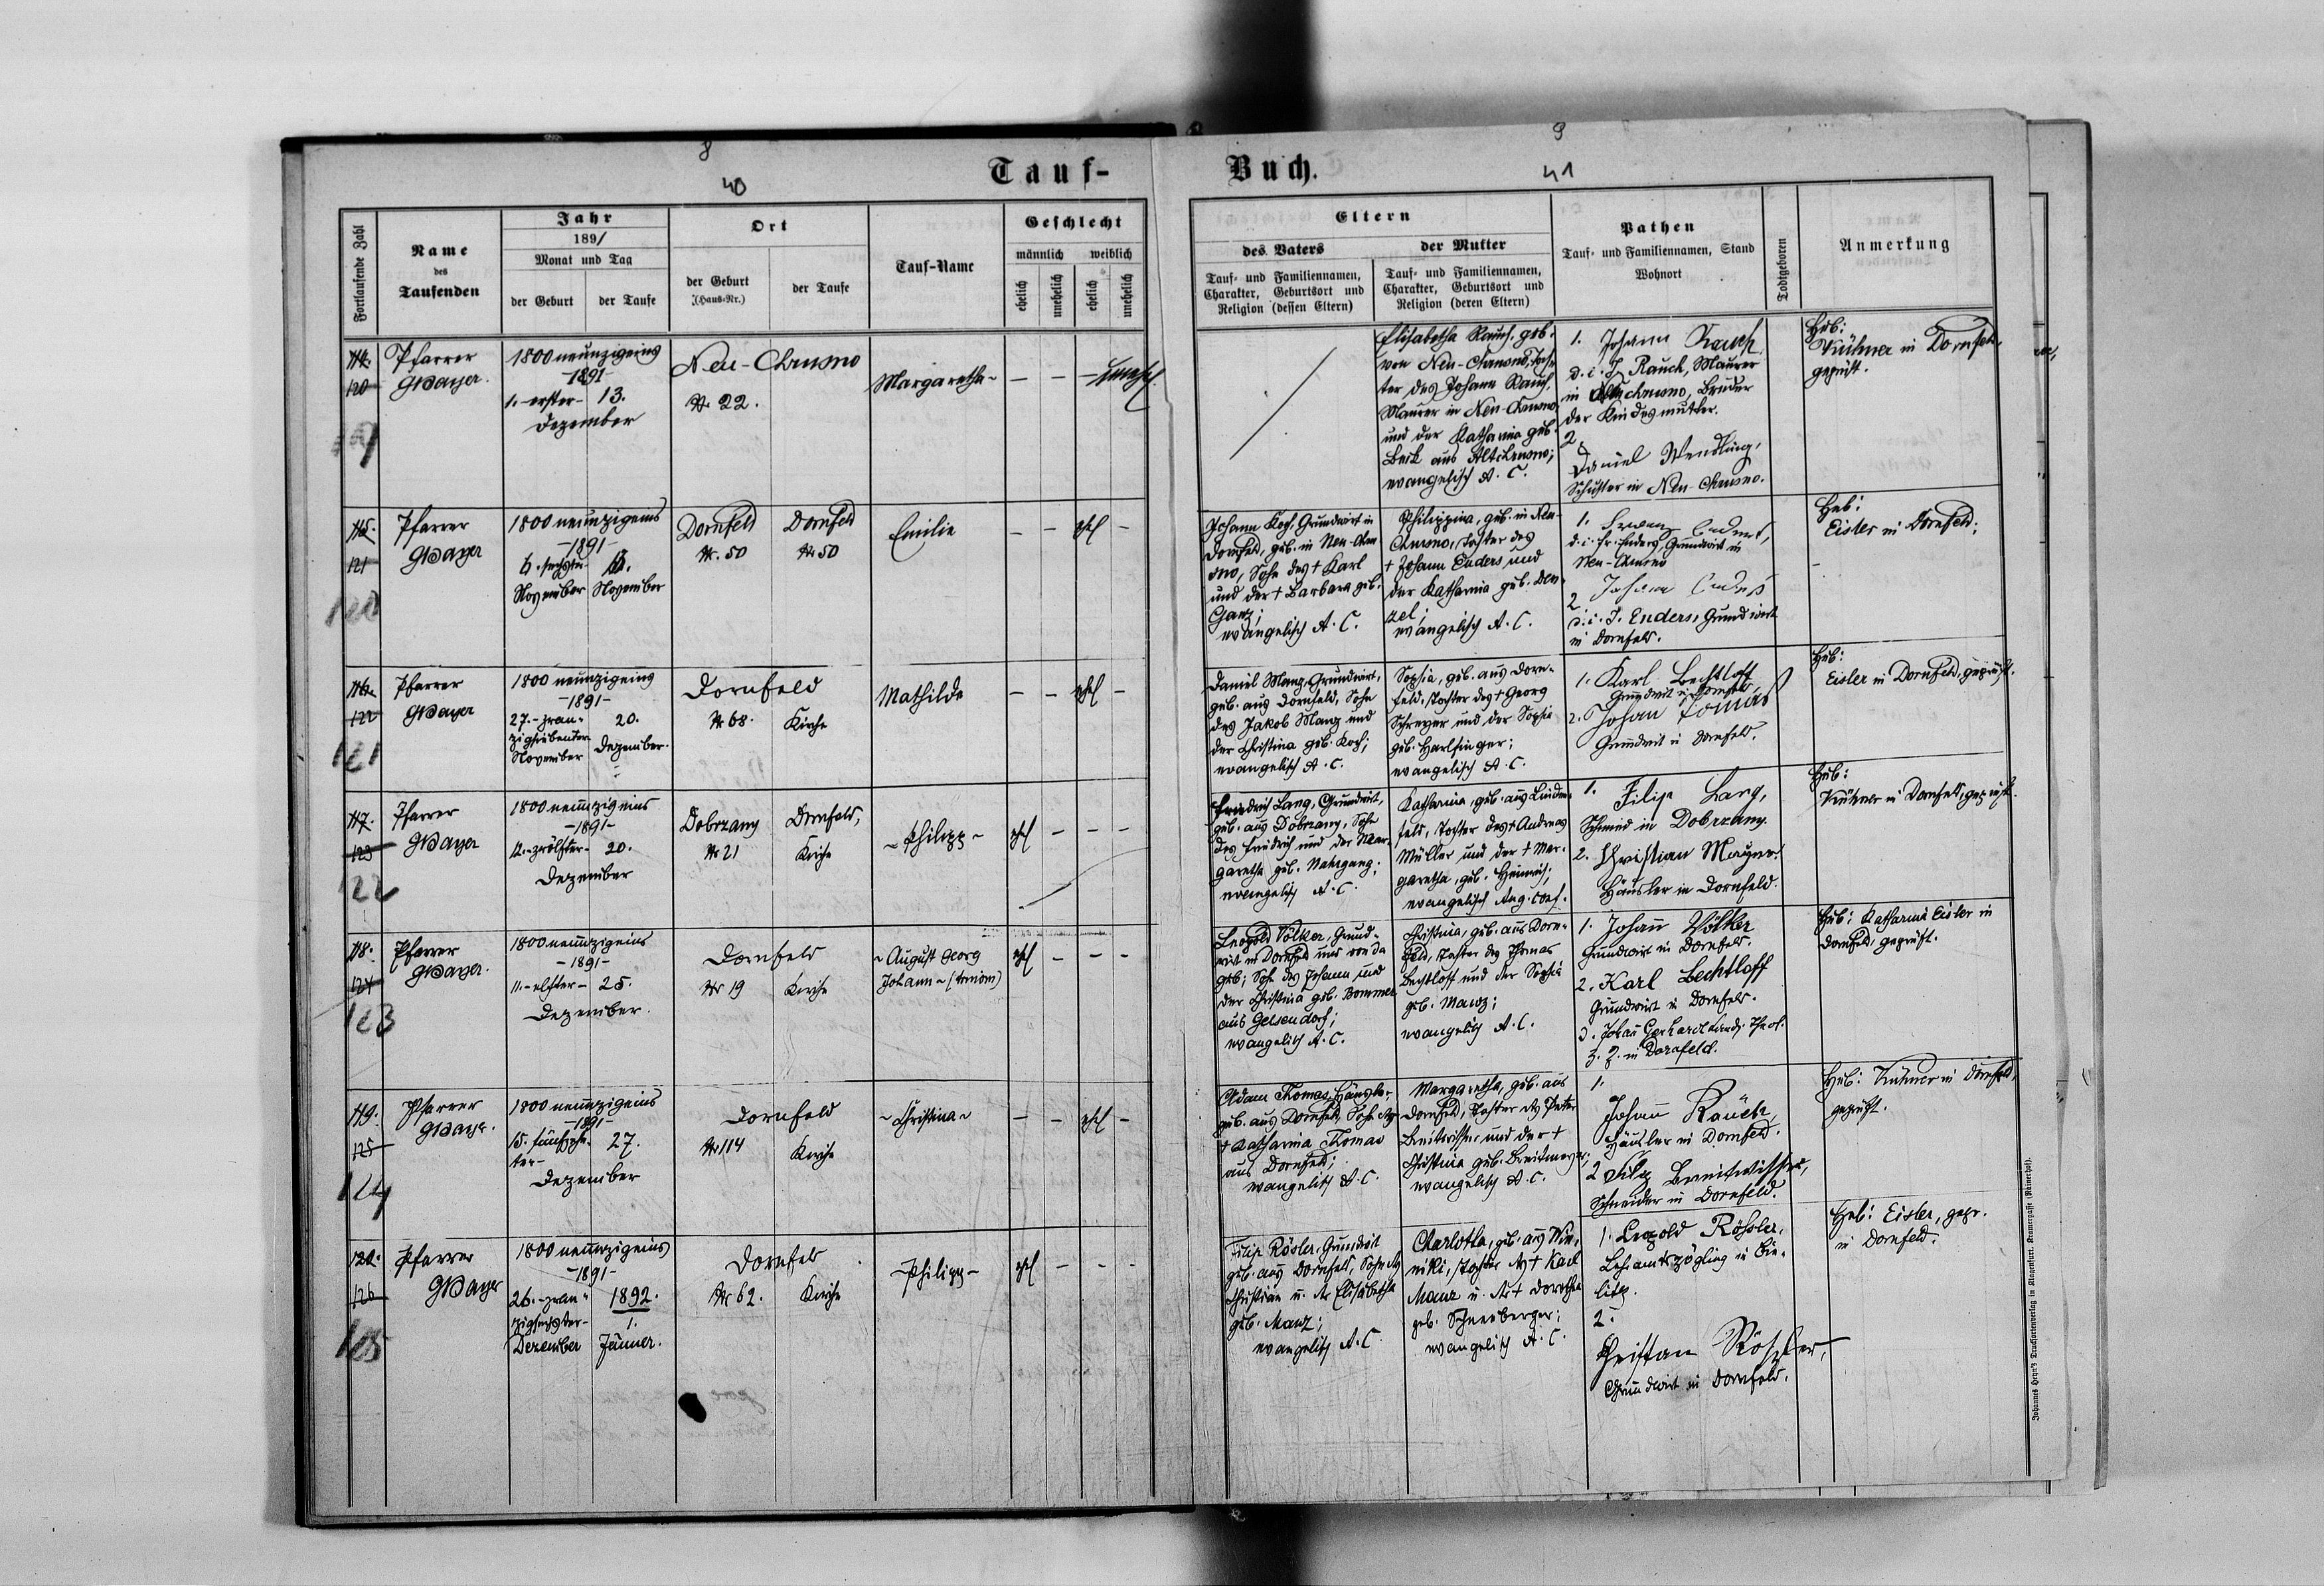 8
40
Tauf-
Fortlaufende Zahl
Name
des
Taufenden
Jahr
1891
Monat und Tag
der Geburt
der Taufe
Ort
der Geburt
(Haus-Nr.)
der Taufe
Tauf-Name
Geschlecht
männlich
weiblich
ehelich
unehelich
ehelich
unehelich
114.
120
Pfarrer
GBayer.
1800 neunzigeins
-1891-
1.-erster- 13.
Dezember
Neu-Chrusno
Nr. 22.
Margaretha
— — — unehel
115.
121
Pfarrer
GBayer
1800 neunzigeins
-1891-
6. sechster
November November
Dornfeld Dornfeld
Nr. 50 Nr. 50
Emilie
— — ehel —
116.
122
121
Pfarrer
GBayer
1800 neunzigeins
-1891-
27.-zwan- 20.
zigsiebenter
November Dezember.
Dornfeld
Nr 68. Kirche
Mathilde
— — ehel —
117.
123
122
Pfarrer
GBayer
1800 neunzigeins
-1891-
12.-zwölfter- 20.
Dezember
Dobrzany Dornfeld,
Nr 21 Kirche
~ Philipp ~
ehel — — —
118.
124
123
Pfarrer
GBayer.
1800 neunzigeins
-1891-
11.-elfter- 25.
Dezember.
Dornfeld
Nr 19 Kirche
~ August Georg
Johann ~
ehel — — —
119.
125
124
Pfarrer
GBayer.
1800 neunzigeins
-1891-
15. fünfzehn- 27.
ter-
Dezember
Dornfeld
Nr 114 Kirche
~ Christina ~
— — ehel —
120.
126
125
Pfarrer
GBayer
1800 neunzigeins
-1891-
26.-zwan- 1892.
zigsechster- 1.
Dezember Jänner.
Dornfeld
Nr 62. Kirche
~ Philipp ~
ehel — — —
9
41
Buch.
Eltern
des Vaters
Tauf- und Familiennamen,
Charakter, Geburtsort und
Religion (dessen Eltern)
der Mutter
Tauf- und Familiennamen,
Charakter, Geburtsort und
Religion (deren Eltern)
Pathen
Tauf- und Familiennamen, Stand
Wohnort
Todtgeboren
Anmerkung
Elisabetha Rauch, geb.
von Neu-Chrusno, Toch-
ter des Johann Rauch,
Maurer in Neu-Chrusno,
und der Katharina geb.
Beck aus Altchrusno;
evangelisch A. C.
1. Johann Rauch
d. i. J. Rauch, Maurer
in Altchrusno, Bruder
der Kindesmutter.
2.
Daniel Wendling,
Schuster in Neu-Chrusno.
Heb:
Kühner in Dornfeld,
geprüft.
Johann Koch, Grundwirt in
Dornfeld, geb. in Neu-Chru
sno, Sohn des † Karl
und der † Barbara geb.
Ganz;
evangelisch A. C.
Philippina, geb. in Neu-
Chrusno, Tochter des
† Johann Enders und
der Katharina geb. Den
zel;
evangelisch A. C.
1. Enders,
d. i. Fr. Enders, Grundwirt in
Neu-Chrusno
2. Johann Enders
d. i. J. Enders, Grundwirt
in Dornfeld.
Heb:
Eisler in Dornfeld;
Daniel Manz, Grundwirt,
geb. aus Dornfeld, Sohn
des Jakob Manz und
der Christina geb. Koch;
evangelisch A. C.
Sophia, geb. aus Dorn-
feld, Tochter des † Georg
Schreyer und der Sophia
geb. Harlfinger;
evangelisch A. C.
1. Karl Bechtloff
Grundwirt in Dornfeld
2. Johan Tomas
Grundwirt in Dornfeld.
Heb:
Eisler in Dornfeld, geprüft.
Friedrich Lang, Grundwirt,
geb. aus Dobrzany, Sohn
des Friedrich und der Mar-
garetha geb. Nahrgang;
evangelisch A. C.
Katharina, geb. aus Linden-
feld, Tochter des † Andreas
Müller und der † Mar-
garetha, geb. Heinrich;
evangelisch Aug. Conf.
1. Filip Lang,
Schmied in Dobrzany.
2. Christian Mayer
Häusler in Dornfeld.
Heb:
Kühner in Dornfeld, geprüft.
Leopold Völker, Grund-
wirt in Dornfeld und von da
geb; Sohn des Johann und
der Christina geb. Bommer
aus Gelsendorf;
evangelisch A. C.
Christina, geb. aus Dorn-
feld, Tochter des Thomas
Bechtloff und der Sophia
geb. Manz;
evangelisch A. C.
1. Johann Völker
Grundwirt in Dornfeld.
2. Karl Bechtloff
Grundwirt in Dornfeld.
3. Johann Gerhardt Theol.
z. Z. in Dornfeld.
Heb: Katharina Eisler in
Dornfeld, geprüft.
Adam Thomas, Häusler,
geb. aus Dornfeld, Sohn der
† Katharina Thomas
aus Dornfeld;
evangelisch A. C.
Margaretha, geb. aus
Dornfeld, Tochter des Peter
Breitwieser und der †
Christina geb. Breitmeyer;
evangelisch A. C.
1.
Johann Rauch
Häusler in Dornfeld.
2 Filip Breitwisser,
Schneider in Dornfeld.
Heb: Kühner in Dornfeld,
geprüft.
Filip Rösler, Grundwirt
geb. aus Dornfeld, Sohn des
Christian u. der Elisabetha
geb. Manz;
evangelisch A. C
Charlotta, geb. aus Win-
niki, Tochter des † Karl
Manz u. der † Dorothea
geb. Schneeberger;
evangelisch A. C.
1. Leopold Röhsler,
Lehramtszögling in Bie-
litz.
2.
Christian Röszler,
Grundwirt in Dornfeld.
Heb: Eisler, gepr.
in Dornfeld.
Johannes Heyn's Drucksortenverlag in Klagenfurt, Kramergasse